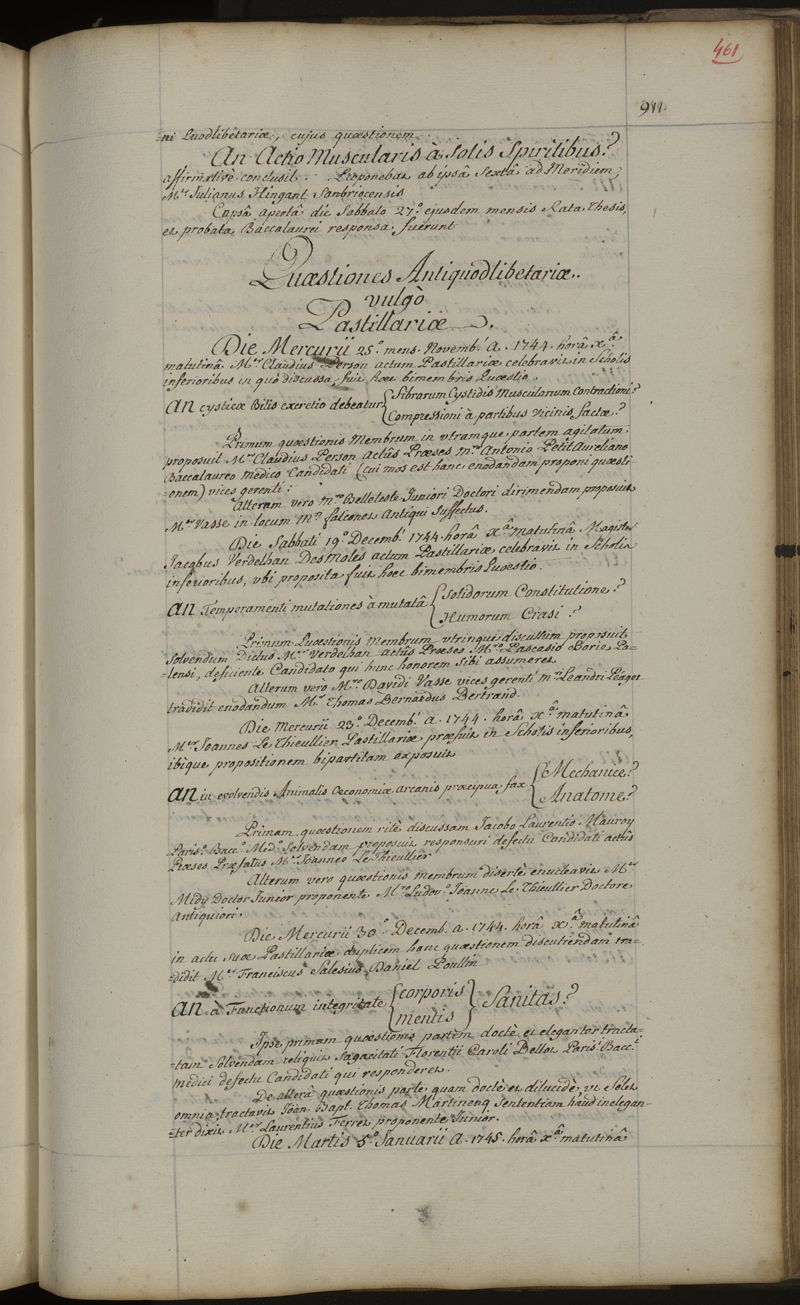 461
911
=ni Quodlibetariæ, cujus quæstionem
An Actio Muscularis à Solis Spiritibus?
affirmativè conclusit. Proponebat ab ipsâ Sextâ ad Meridiem,
M.er Julianus Hingant Sanbriocensis
Capsâ apertâ die Sabbato 27.o ejusdem mensis Rata Thesis,
et probata Baccalaurei responsa, fuerunt
Quæstiones Antiquodlibetariæ..
vulgò
Pastillariæ.
Die Mercurii 25.o mens. Novemb. a. 1744. horâ x.â
matutinâ M.er Claudius Person actum Pastillariæ celebravit in Scholis
inferioribus in quo discussa, fuit hæc bimembris Quæstio.
An cysticæ Bilis excretio debeatur { fibrarum Cystidis Muscularum Contractioni?
Compressioni à partibus Vicinis, factæ?
Primum quæstionis Membrum in utramque, partem agitatum,
proposuit M.er Claudius Person actûs Præses m.ro Antonio Petit Aureliano
Baccalaureo Medico Candidati (cui mos est hanc, enodandam proponi quæsti-
=onem) vices gerenti;
Alteram vero m.ro Belleteste Juniori Doctori dirimendam proposuit
M.er Vasse in locum M.ri falconet Antiqui Suffectus.
Die Sabbati 19.o Decemb. 1744. horâ x.â matutinâ Magister
Jacobus Verdelhan Des Moles actum Pastillariæ celebravit in Scholis
inferioribus, ubi proposita fuit hæc bimembris Quæstio.
An Temperamenti mutationes à mutatâ { Solidorum Constitutione?
Humorum Crasi?
Primum Quæstionis Membrum utrinque, discussum proposuit
Solvendum Dictus M.er Verdelhan actûs Præses M.ro Pascasio Borie Pa-
=tensi, deficiente Candidato qui hunc honorem Sibi assumeret.
Alterum verò M.ro Davidi Vasse vices gerenti m.ri Leandri Peaget
tradidit enodandum M.er Thomas Bernardus Bertrand.
Die Mercurii 23.o Decemb. a. 1744. horâ x.â matutinâ
M.er Joannes Le Thieullier Pastillariæ præfuit in Scholis inferioribus,
ibique propositionem bipartitam exposuit
An in evolvendis Animalis Œconomiæ arcanis præcipua, fax { Mechanice?
Anatome?
Primam quæstionem ritè discussam Jacobo Laurentio Mauroy
Paris.o Bacc.o Med.o Solvendam proposuit responsuri defectu Candidati actûs
Præses Præfatus M.er Joannes Le Thieullier
Alterum vero quæstionis membrum disertè enucleavit M.er
Midy Doctor Junior proponente M.ro Ludov.o Joanne Le Thieullier Doctore
Antiquiori.
Die Mercurii 30.o Decemb. a. 1744. horâ x.â matutinâ
in actu Suæ Pastillariæ duplicem hanc quæstionem discutiendam tra-
=didit M.er Franciscus Salesius Daniel Poullin
An à Functionum integritate { corporis
mentis } Sanitas?
Ipse, primam quæstionis partem doctè et eleganter tracta-
=tam Solvendam reliquit Sagacitati Florentii Caroli Bellot Paris.i Bacc.i
Medici defectu Candidati qui responderet.
De alterâ quæstionis parte quam doctè et dilucidè, ut Solet
omnia, tractavit Joan. Bapt. Thomas Martinenq Sententiam haud inelegan-
=ter dixit M.er Laurentius Ferret proponente Junior.
Die Martis 5.o Januarii a. 1745. horâ x.â matutinâ